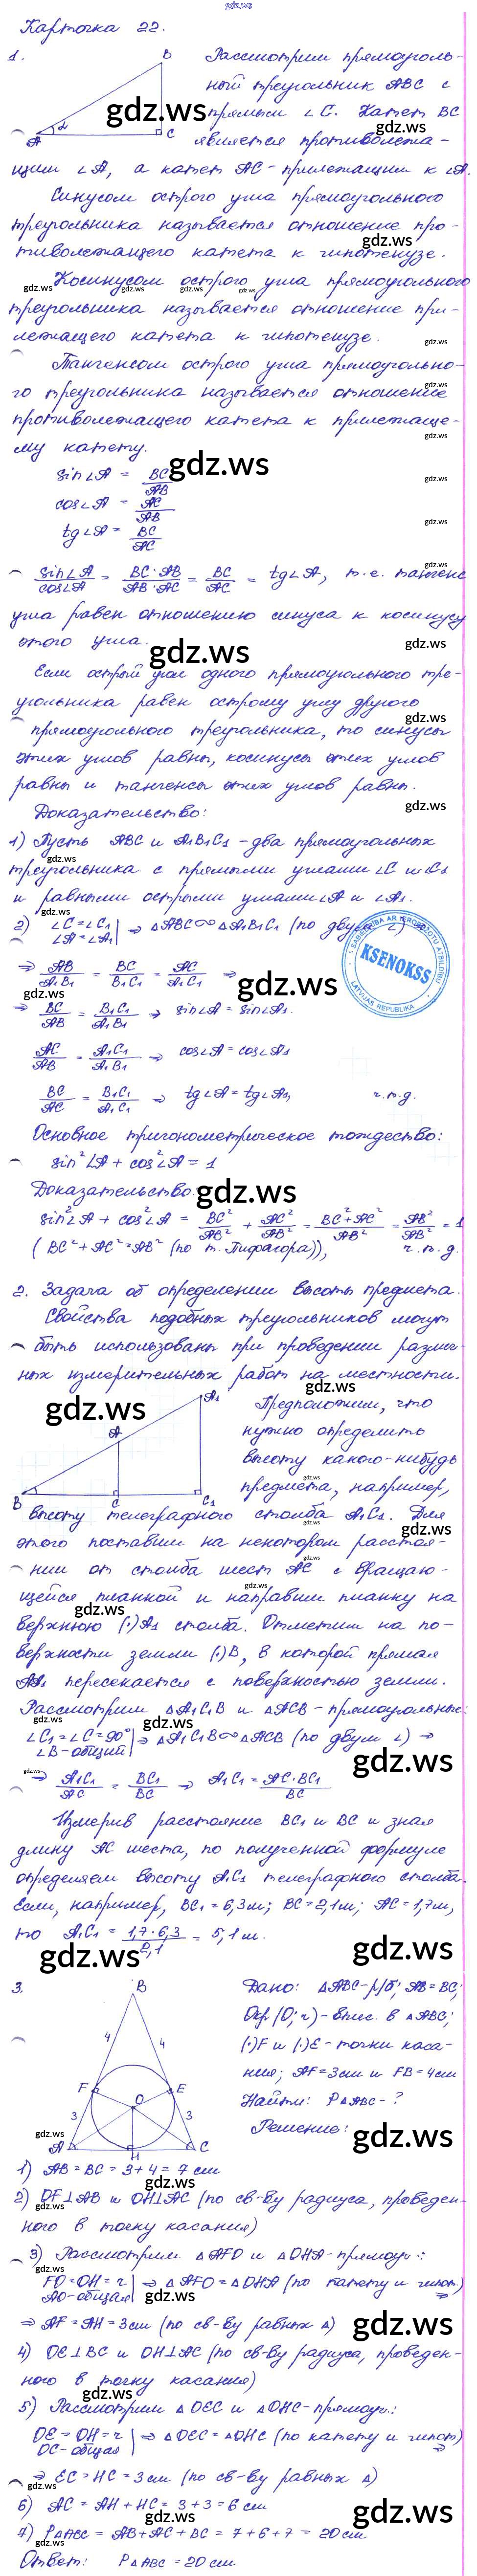 gdz.ws
Карточка 22.
1.
B
A
α
C
Рассмотрим прямоуголь-
ный треугольник ABC с
прямым ∠C. Катет BC
является противолежа-
щим ∠A, а катет AC - прилежащим к ∠A.
Синусом острого угла прямоугольного
треугольника называется отношение про-
тиволежащего катета к гипотенузе.
Косинусом острого угла прямоугольного
треугольника называется отношение при-
лежащего катета к гипотенузе.
Тангенсом острого угла прямоугольно-
го треугольника называется отношение
противолежащего катета к прилежаще-
му катету.
sin∠A = BC/AB
cos∠A = AC/AB
tg∠A = BC/AC
sin∠A/cos∠A = BC·AB/AB·AC = BC/AC = tg∠A, т.е. тангенс
угла равен отношению синуса к косинусу
этого угла.
Если острый угол одного прямоугольного тре-
угольника равен острому углу другого
прямоугольного треугольника, то синусы
этих углов равны, косинусы этих углов
равны и тангенсы этих углов равны.
Доказательство:
1) Пусть ABC и A1B1C1 - два прямоугольных
треугольника с прямыми углами ∠C и ∠C1
и равными острыми углами ∠A и ∠A1.
2) ∠C = ∠C1
∠A = ∠A1 | ⇒ △ABC∾△A1B1C1 (по двум ∠) ⇒
⇒ AB/A1B1 = BC/B1C1 = AC/A1C1 ⇒
⇒ BC/AB = B1C1/A1B1 ⇒ sin∠A = sin∠A1.
AC/AB = A1C1/A1B1 ⇒ cos∠A = cos∠A1
BC/AC = B1C1/A1C1 ⇒ tg∠A = tg∠A1, ч.т.д.
KSENOKSS
LATVIJAS REPUBLIKA
Основное тригонометрическое тождество:
sin²∠A + cos²∠A = 1
Доказательство.
sin²∠A + cos²∠A = BC²/AB² + AC²/AB² = BC²+AC²/AB² = AB²/AB² = 1
(BC² + AC² = AB² (по т. Пифагора)), ч.т.д.
2. Задача об определении высоты предмета.
Свойства подобных треугольников могут
быть использованы при проведении различ-
ных измерительных работ на местности.
A1
A
B
C
C1
Предположим, что
нужно определить
высоту какого-нибудь
предмета, например,
высоту телеграфного столба A1C1. Для
этого поставим на некотором расстоя-
нии от столба шест AC с вращаю-
щейся планкой и направим планку на
верхнюю (·)A1 столба. Отметим на по-
верхности земли (·)B, в которой прямая
AA1 пересекается с поверхностью земли.
Рассмотрим △A1C1B и △ACB - прямоугольные:
∠C1 = ∠C = 90°
∠B - общий | ⇒ △A1C1B∾△ACB (по двум ∠) ⇒
⇒ A1C1/AC = BC1/BC ⇒ A1C1 = AC·BC1/BC
Измерив расстояние BC1 и BC и зная
длину AC шеста, по полученной формуле
определяем высоту A1C1 телеграфного столба.
Если, например, BC1 = 6,3м; BC = 2,1м; AC = 1,7м,
то A1C1 = 1,7·6,3/2,1 = 5,1м.
3.
B
4
4
F
E
O
3
3
A
H
C
Дано: △ABC - р/б; AB = BC;
Окр (O; r) - впис. в △ABC;
(·)F и (·)E - точки каса-
ния; AF = 3см и FB = 4см
Найти: P△ABC - ?
Решение:
1) AB = BC = 3 + 4 = 7 см
2) OF⊥AB и OH⊥AC (по св-ву радиуса, проведен-
ного в точку касания)
3) Рассмотрим △AFO и △OHA - прямоуг.:
FO = OH = r
AO - общая | ⇒ △AFO = △OHA (по катету и гипот.) ⇒
⇒ AF = AH = 3см (по св-ву равных △)
4) OE⊥BC и OH⊥AC (по св-ву радиуса, проведен-
ного в точку касания)
5) Рассмотрим △OEC и △OHC - прямоуг.:
OE = OH = r
OC - общая | ⇒ △OEC = △OHC (по катету и гипот) ⇒
⇒ EC = HC = 3 см (по св-ву равных △)
6) AC = AH + HC = 3 + 3 = 6 см
7) P△ABC = AB + AC + BC = 7 + 6 + 7 = 20 см
Ответ: P△ABC = 20 см